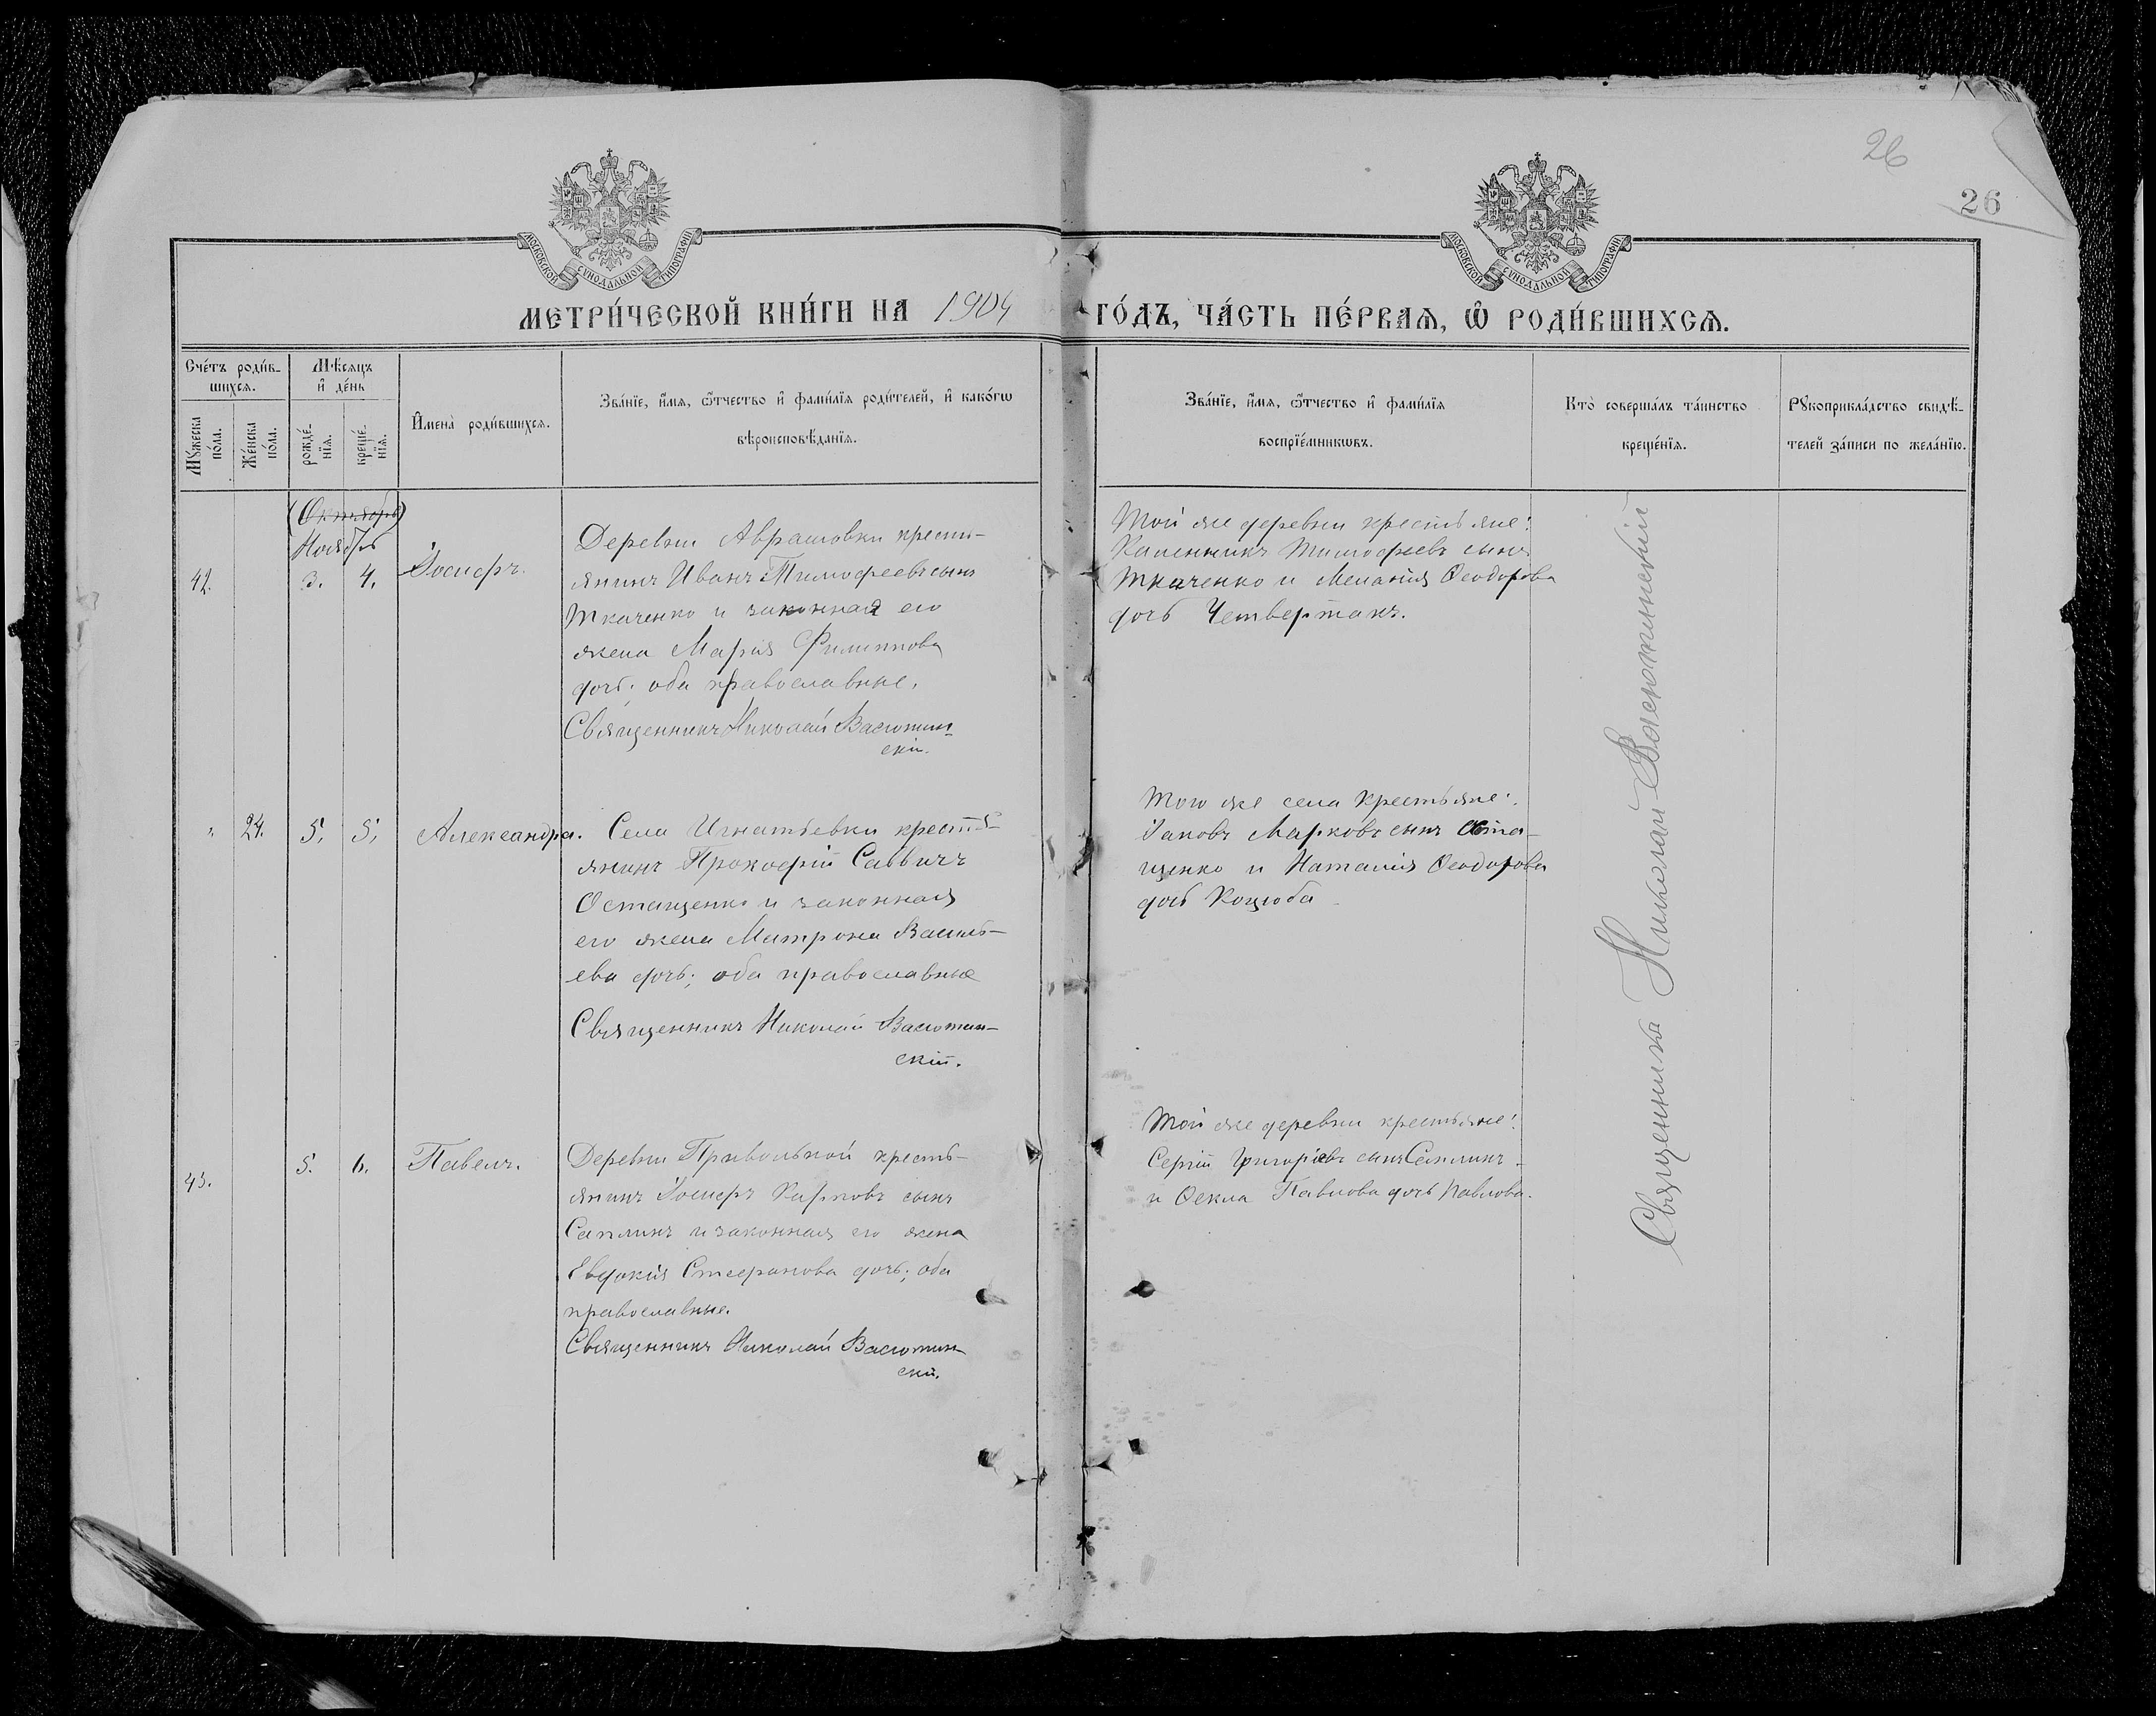 26
26
МОСКОВСКОЙ СѴНОДАЛЬНОЙ ТИПОГРАФІИ
МОСКОВСКОЙ СѴНОДАЛЬНОЙ ТИПОГРАФІИ
МЕТРИ́ЧЕСКОЙ КНИ́ГИ НА 1904 ГО́ДЪ, ЧА́СТЬ ПЕ́РВАѦ, Ѽ РОДИ́ВШИХСѦ.
Сче́тъ роди́в-
шихсѧ.
Мꙋ́жеска
по́ла.
Же́нска
по́ла.
Мѣ́сѧцъ
и҆ де́нь
рожде́-
нїѧ.
креще́-
нїѧ.
И҆мена̀ роди́вшихсѧ.
Зва́нїе, и҆́мѧ, ѻ҆́тчество и҆ фами́лїѧ роди́телей, и҆ како́гѡ
вѣроисповѣ́данїѧ.
Зва́нїе, и҆́мѧ, ѻ҆́тчество и҆ фами́лїѧ
воспрїе́мникѡвъ.
Кто̀ соверша́лъ та́инство
креще́нїѧ.
Рꙋкоприкла́дство свидѣ́-
телей за́писи по жела́нїю.
(Октябрь)
Ноябрь
42.
3.
4.
Іосифъ.
Деревни Аврамовки кресть-
янинъ Иванъ Тимофеевъ сынъ
Ткаченко и законная его
жена Марія Филиппова
дочь; оба православные.
Священникъ Николай Васютин-
скій.
Той же деревни крестьяне:
Калинникъ Тимофеевъ сынъ
Ткаченко и Меланія Ѳеодорова
дочь Четвертакъ.
" 24. 5. 5. Александра.
Села Игнатьевки кресть-
янинъ Прокофій Саввичъ
Остащенко и законная
его жена Матрона Василь-
ева дочь; оба православные
Священникъ Николай Васютин-
скій.
Того же села крестьяне:
Іаковъ Марковъ сынъ Оста-
щенко и Наталія Ѳеодорова
дочь Коцюба
43.
5. 6. Павелъ.
Деревни Привольной кресть-
янинъ Іосифъ Карповъ сынъ
Саплинъ и законная его жена
Евдокія Стефанова дочь; оба
православные.
Священникъ Николай Васютин-
скій.
Той же деревни крестьяне:
Сергій Григоріевъ сынъ Саплинъ
и Ѳекла Павлова дочь Павлова.
Священникъ Николай Васютинскій